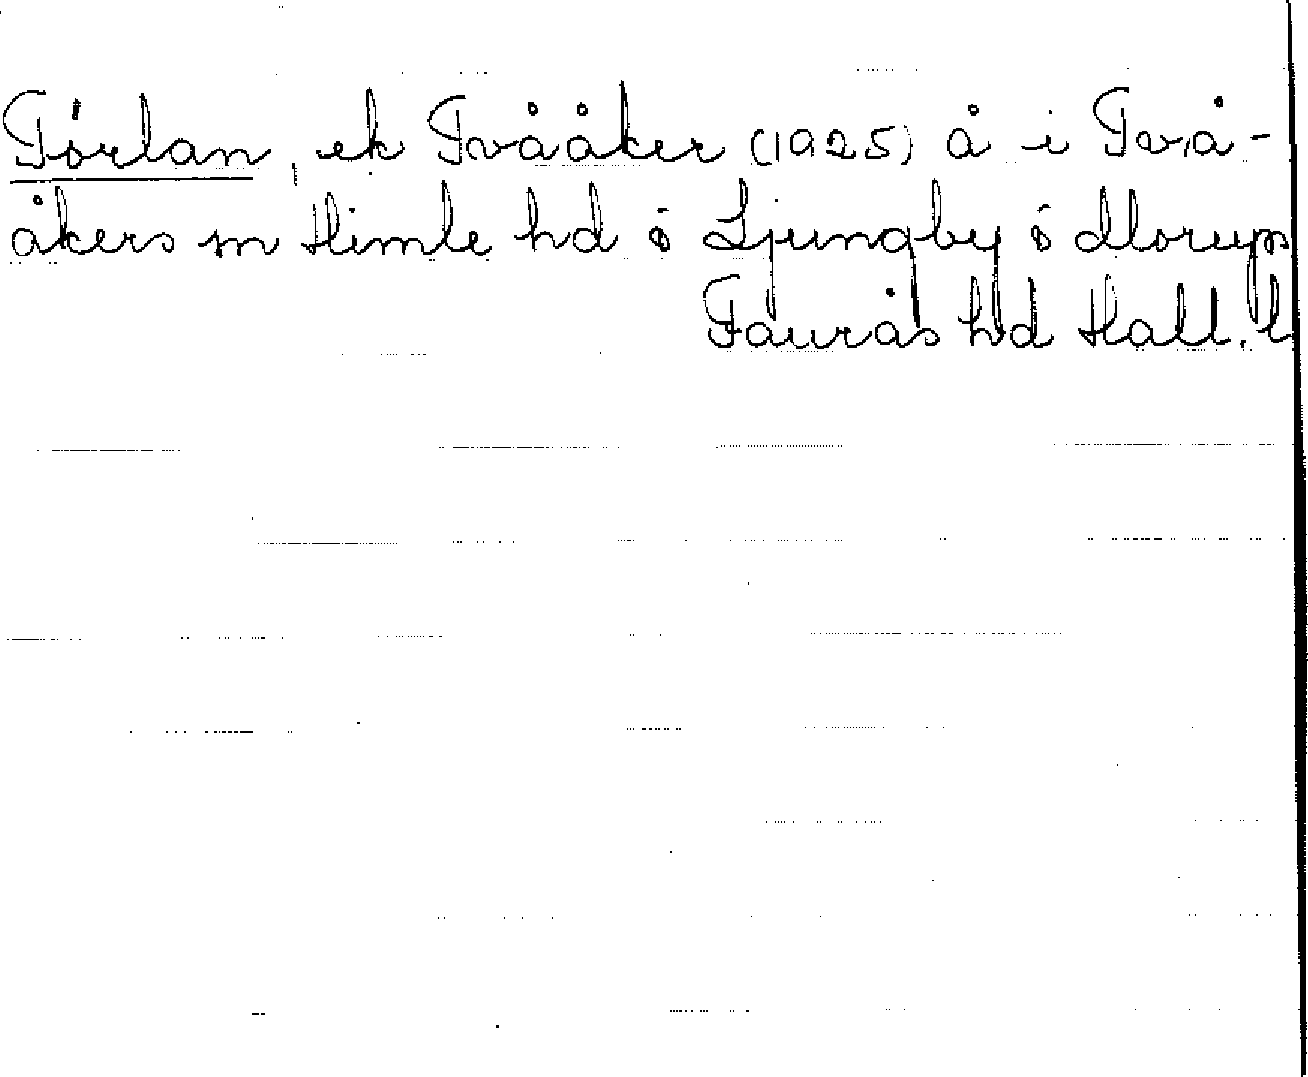 Törlan, ek Tvååker (1925) å i Två-
åkers sn Himle hd o Ljungby o Morup
Faurås hd Hall. l